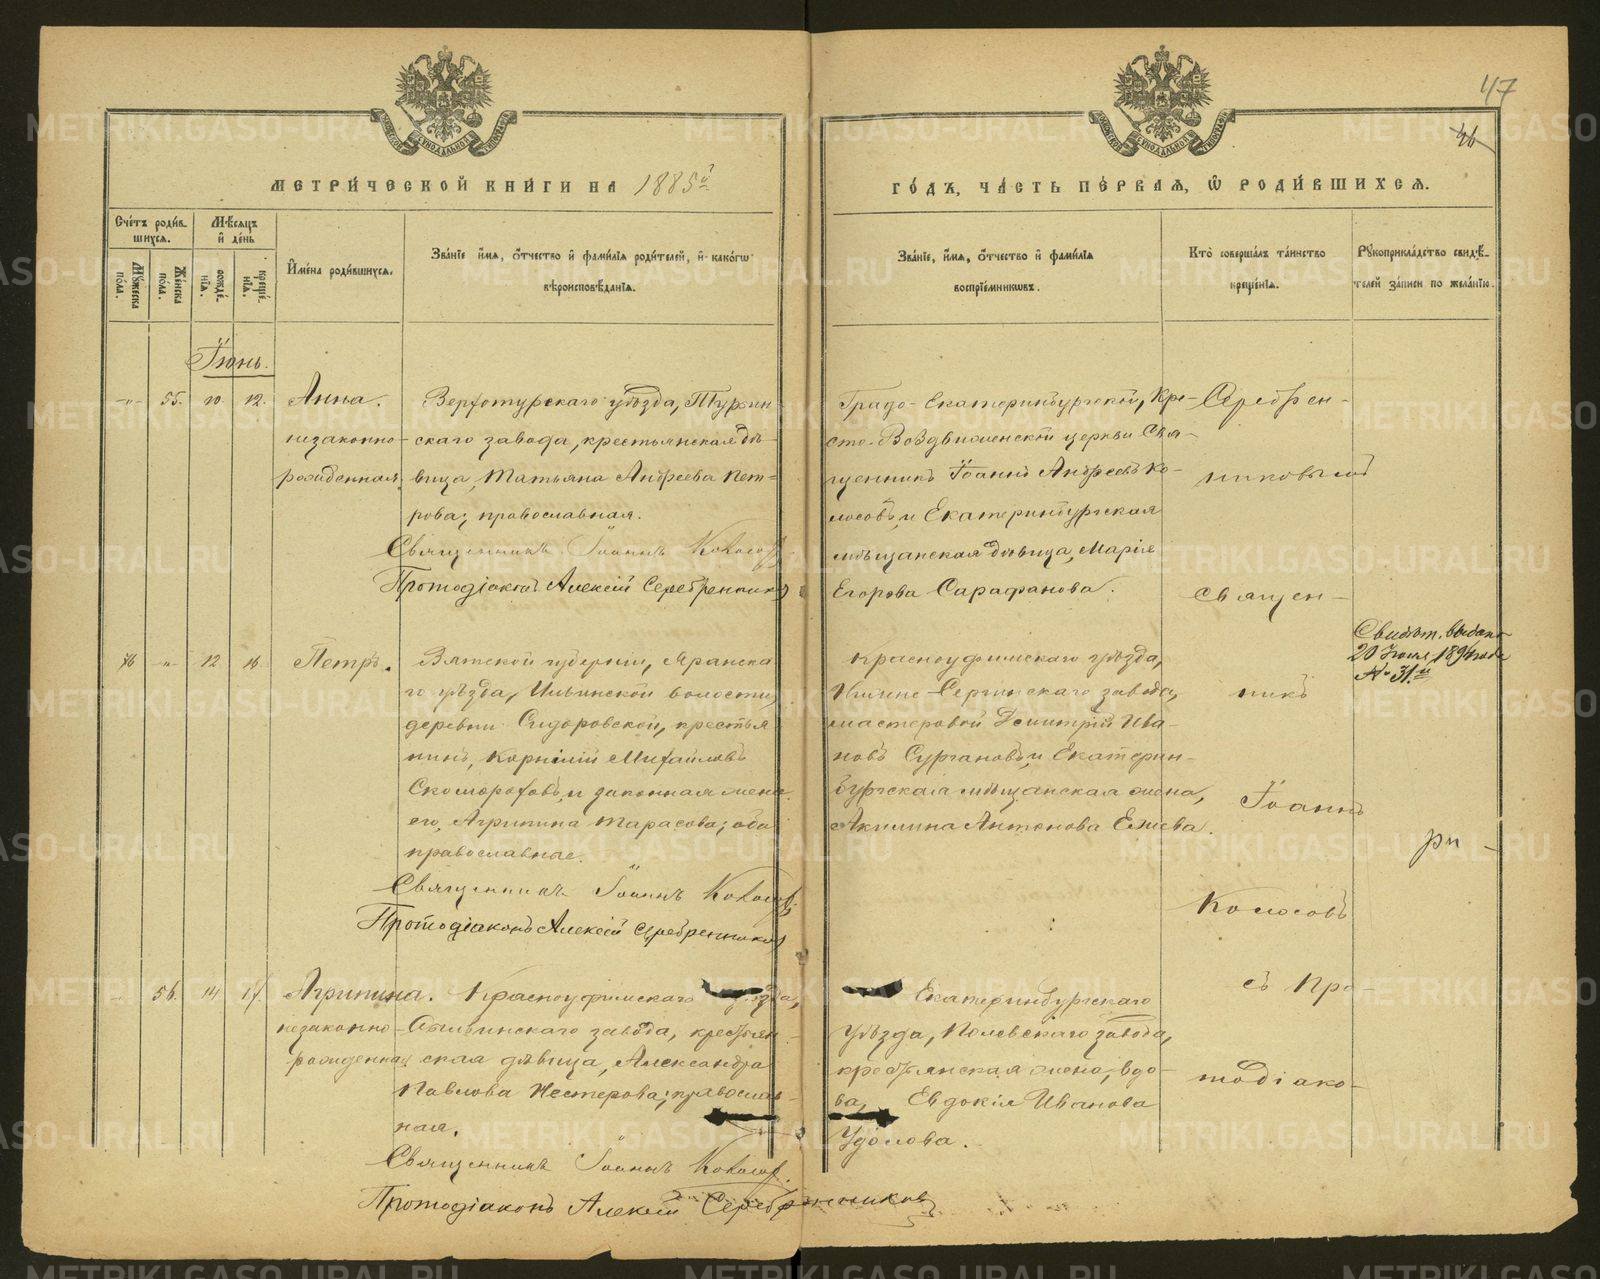 47
46
МЕТРИ́ЧЕСКОЙ КНИ́ГИ НА 1885й
ГО́ДЪ, ЧА́СТЬ ПЕ́РВАЯ, Ѿ РОДИ́ВШИХСЯ.
Сче́тъ роди́в-
шихся.
Му́жеска по́ла.
Же́нска по́ла.
Мѣ́сяцъ
и҆ де́нь
рожде́-
нїя.
креще́-
нїя.
И҆́мена роди́вшихся.
Зва́нїе и҆́мя, о҆́тчество и҆ фами́лїя роди́телей, и҆ како́гѡ
вѣроисповѣ́данїя.
Зва́нїе, и҆́мя, о҆́тчество и҆ фами́лїя
воспрїе́мниковъ.
Кто̀ соверша́лъ та́инство
креще́нїя.
Рꙋкоприкла́дство свидѣ́-
телей за́писи по жела́нїю.
Іюнь.
-"- 55. 10. 12. Анна.
незаконно-
рожденная.
Верхотурскаго уѣзда, Турьин-
скаго завода, крестьянская дѣ-
вица, Татьяна Андреева Пет-
рова; православная.
Священникъ Іоаннъ Колосовъ.
Протодіаконъ Алексій Серебренниковъ
Градо-Екатеринбургской, Кре-
сто-Воздвиженской церкви Свя-
щенникъ Іоаннъ Андреевъ Ко-
лосовъ, и Екатеринбургская
мѣщанская дѣвица, Марія
Егорова Сарафанова.
Серебрен-
никовымъ
Священ-
76 -"- 12 16. Петръ.
Вятской губерніи, Яранска
го уѣзда, Ильинской волости,
деревни Сидоровской, крестья
нинъ, Корнилій Михайловъ
Скомороховъ, и законная жена
его, Агрипина Тарасова; оба
православные.
Священникъ Іоаннъ Колосовъ.
Протодіаконъ Алексій Серебренниковъ
Красноуфимскаго уѣзда,
Нижне-Сергинскаго завода,
мастеровой Димитрій Ива-
новъ Сургановъ, и Екатерин-
бургская мѣщанская жена,
Акилина Антонова Ежева.
никъ
Іоаннъ
Колосовъ
Свидѣт. выдано
20 Іюля 1894 года
№ 31.й
56. 14 17. Агрипина.
незаконно-
рожденная
Красноуфимскаго уѣзда,
скаго завода, крестьян-
ская дѣвица, Александра
Павлова Нестерова; православ-
ная.
Священникъ Іоаннъ Колосовъ.
Протодіаконъ Алексій Серебренниковъ
Екатеринбургскаго
уѣзда, Полевскаго завода,
крестьянская жена, вдо-
ва, Евдокія Иванова
съ Про-
тодіако-